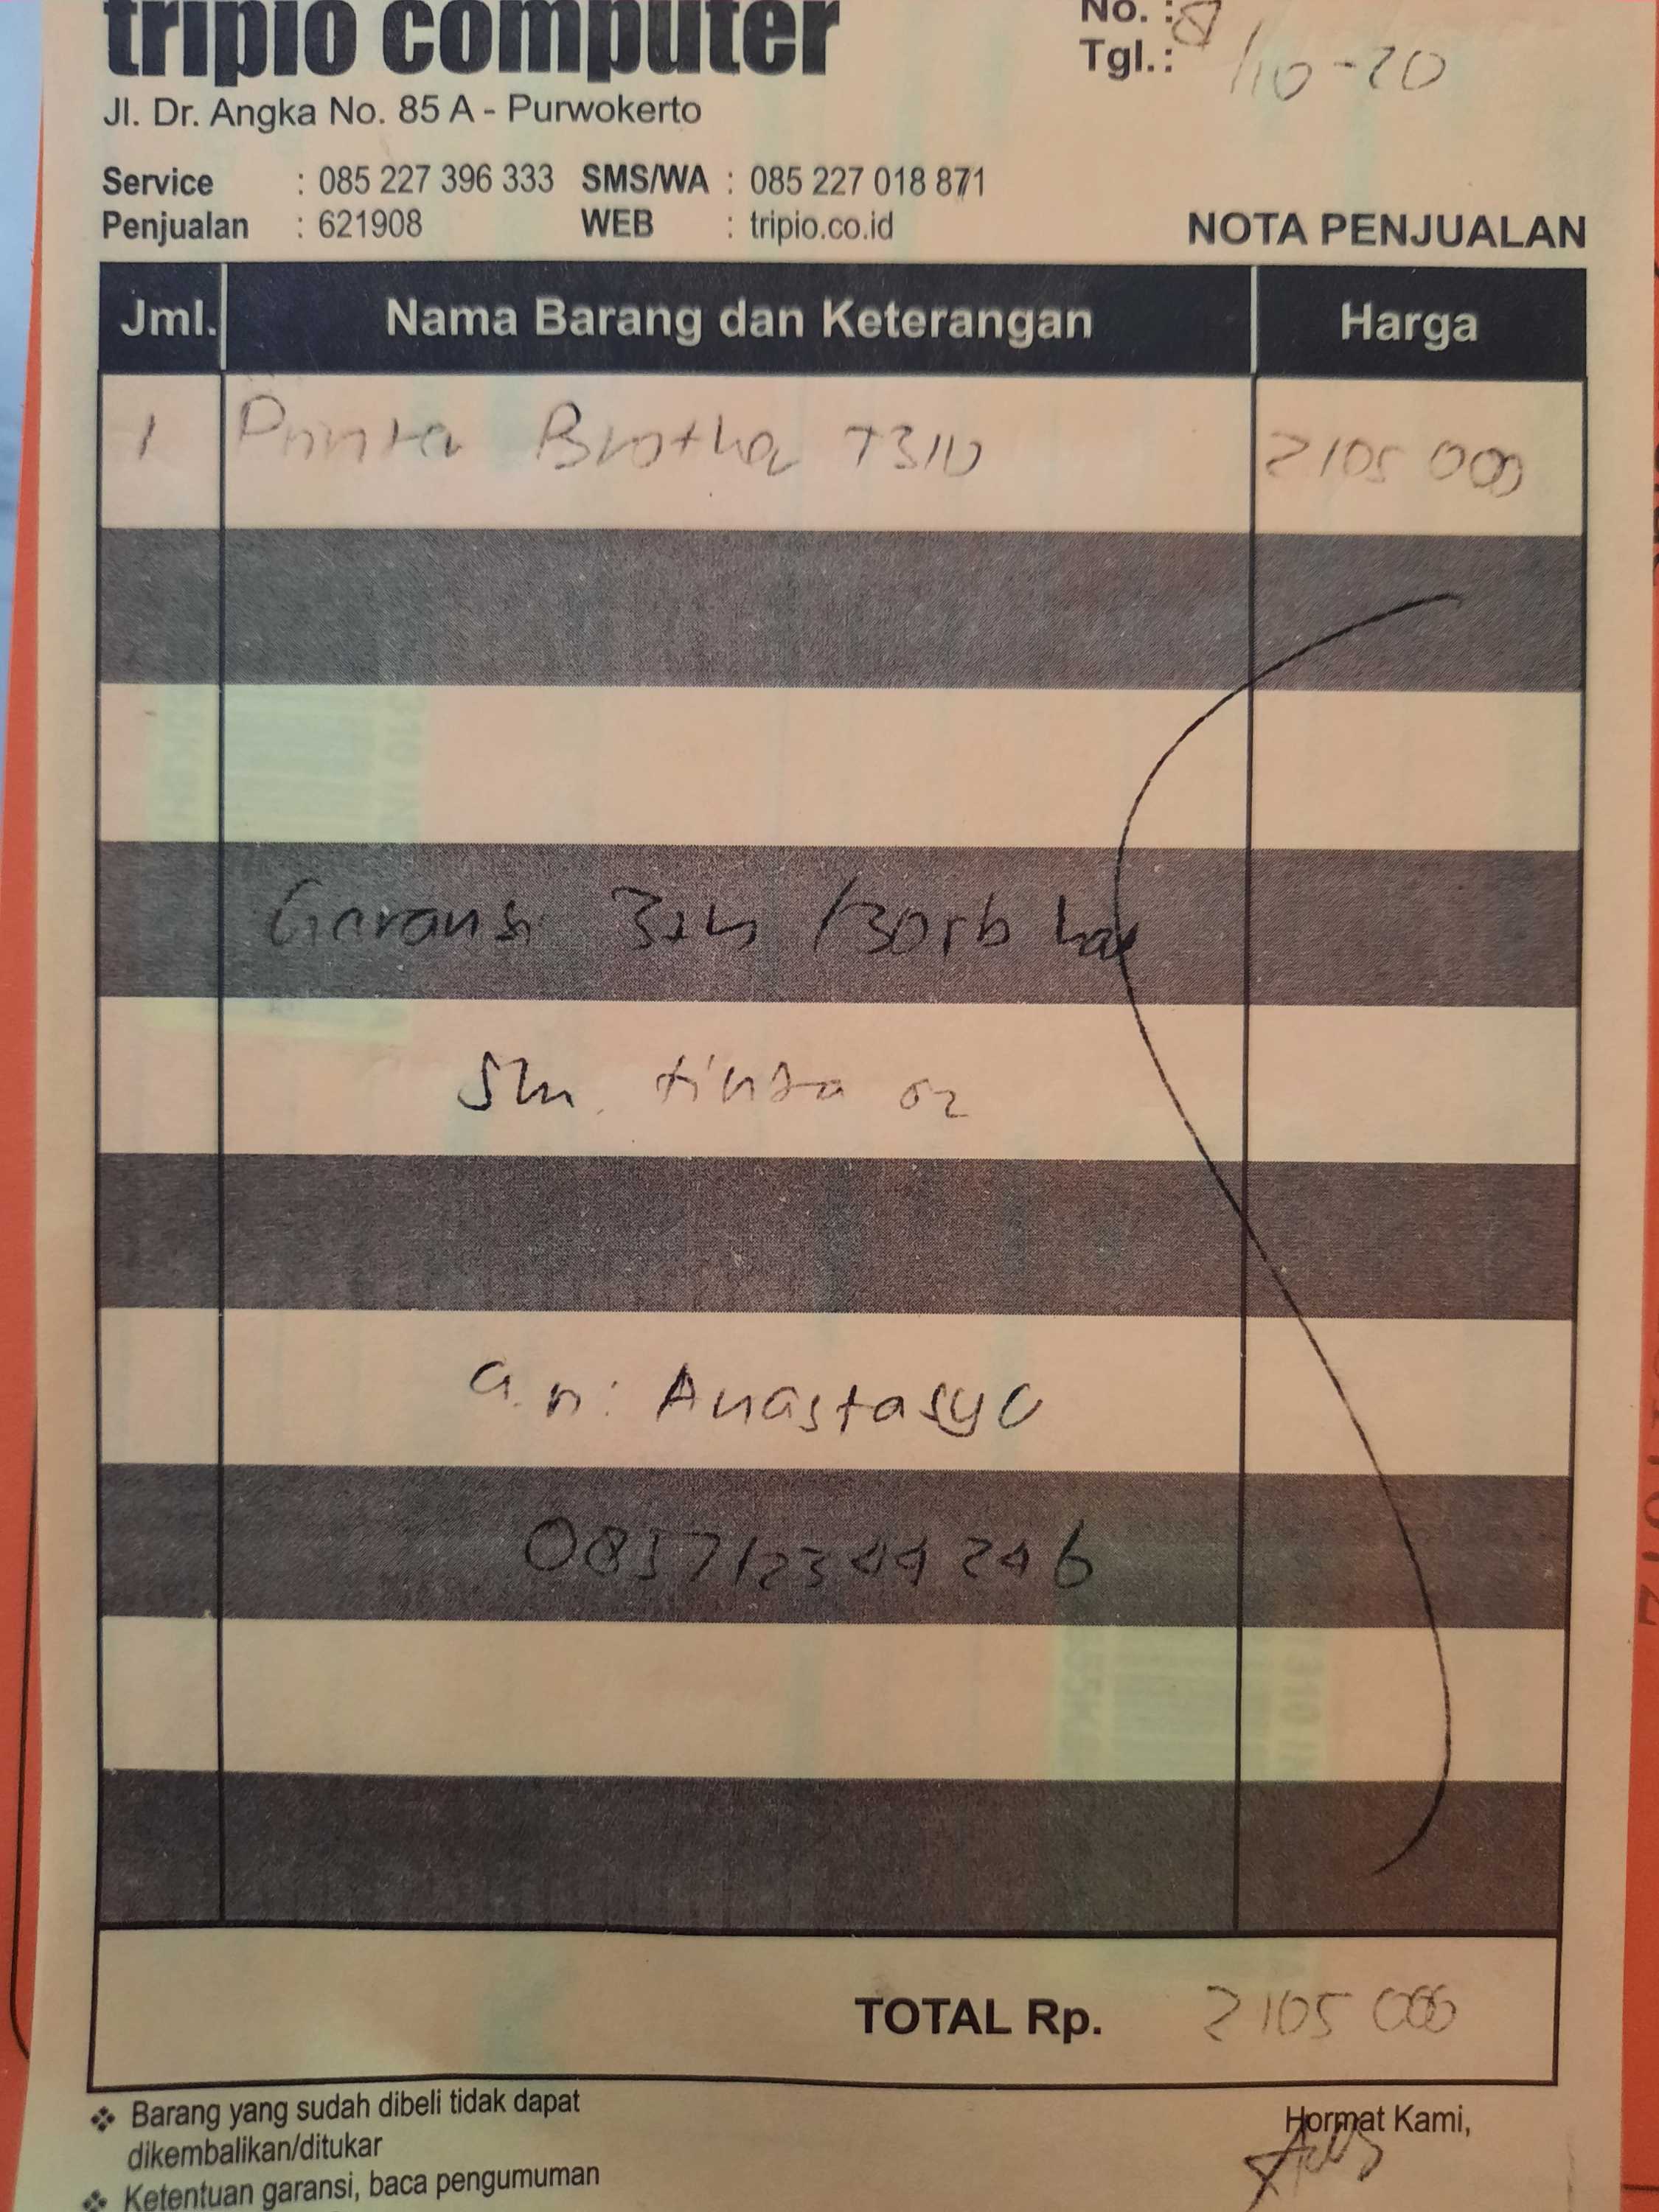 tripio computer
No. :
Tgl. : 8/10-20
Jl. Dr. Angka No. 85 A - Purwokerto
Service : 085 227 396 333 SMS/WA : 085 227 018 871
Penjualan : 621908 WEB : tripio.co.id
NOTA PENJUALAN
Jml. Nama Barang dan Keterangan Harga
1 Printer Brother T310 2105 000
Garansi 3th /30rb hal
tinta
a.n: Anastasya
085712344246
TOTAL Rp. 2105 000
❖ Barang yang sudah dibeli tidak dapat
dikembalikan/ditukar
❖ Ketentuan garansi, baca pengumuman
Hormat Kami,